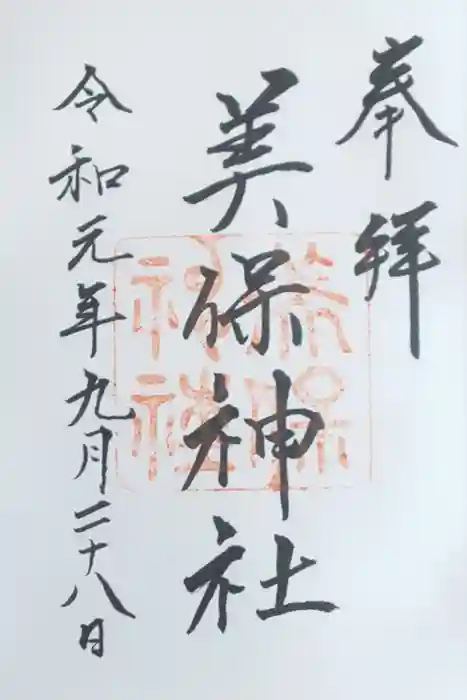 奉拝
美保神社
令和元年九月二十八日
美保神社